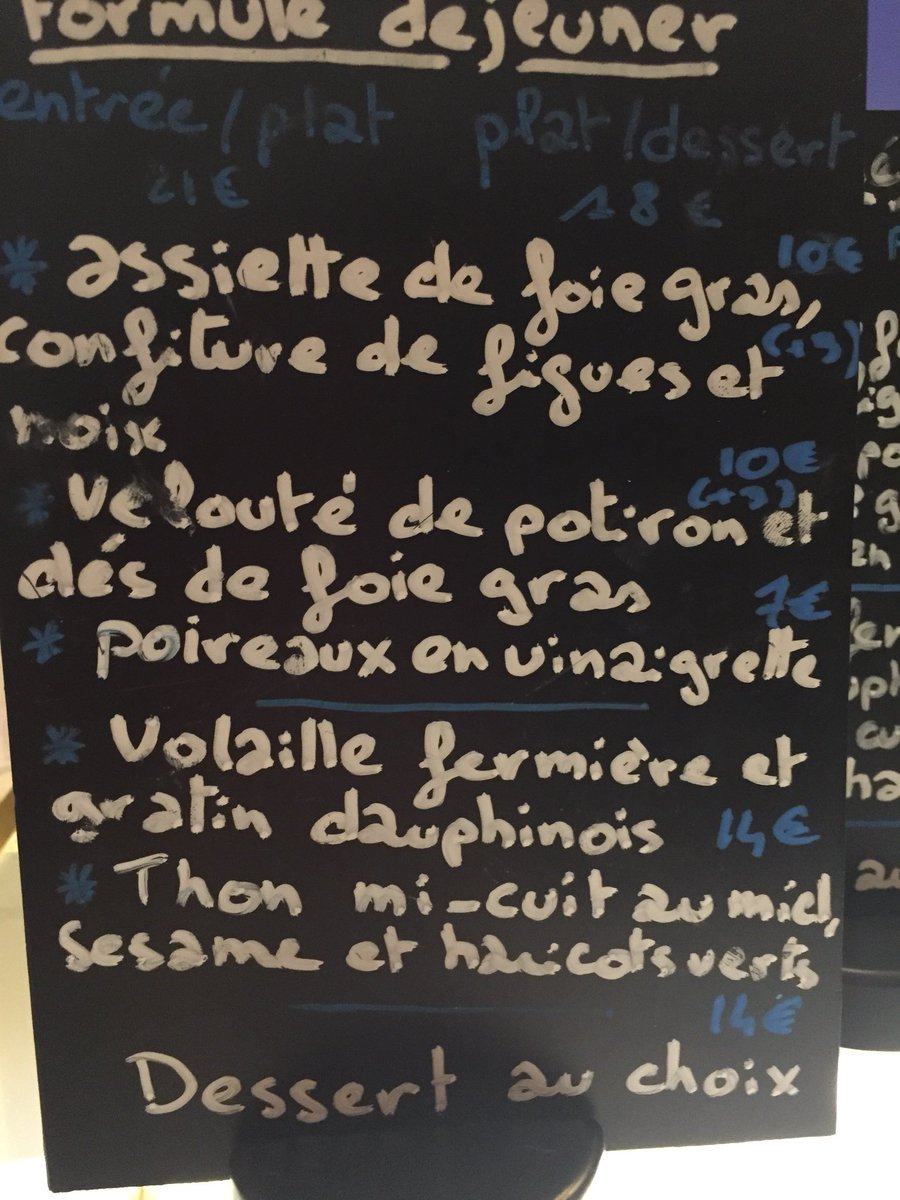 formule dejeuner
entrée/plat plat/dessert
21€ 18€
* assiette de foie gras, 10€
confiture de figues et (+3)
noix
* Velouté de potiron et 10€ (+3)
dés de foie gras 7€
* poireaux en vinaigrette
* Volaille fermière et
gratin dauphinois 14€
* Thon mi-cuit au miel,
Sesame et haricots verts
14€
Dessert au choix